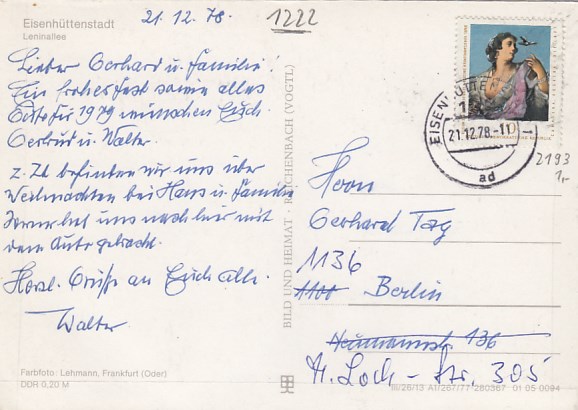 Eisenhüttenstadt
Leninallee
21.12.78
1222
Lieber Gerhard u. Familie!
Ein frohes Fest sowie alles
Gute für 1979 wünschen Euch
Gertrud u. Walter.
z. Zt. befinden wir uns über
Weihnachten bei Hans u. Familie
uns nach hier mit
dem Auto gebracht.
Herzl. Grüße an Euch alle.
Walter
Farbfoto: Lehmann, Frankfurt (Oder)
DDR 0,20 M
BILD UND HEIMAT · REICHENBACH (VOGTL)
21.12.78-11
ad
2193
1,-
Herrn
Gerhard Tag
1136
1100 Berlin
Neumannstr 136
H. Loch-Str. 305
III/26/13 A1/267/77-280367 01 05 0094